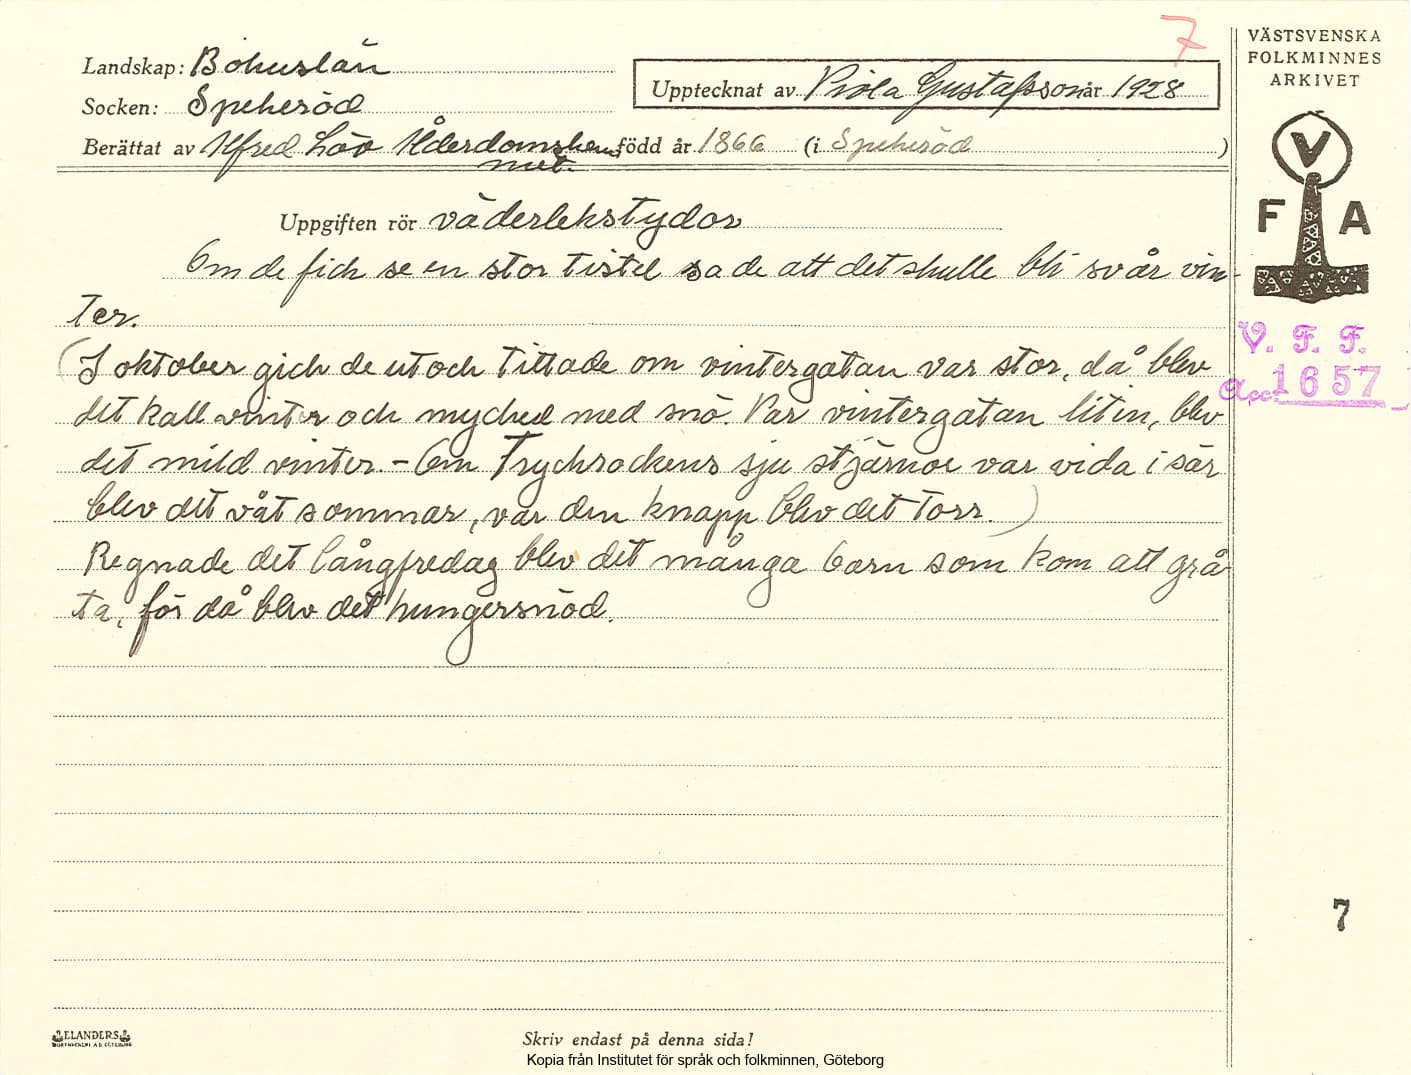 7
Landskap: Bohuslän
Socken: Spekeröd
Berättat av Alfred Löv Ålderdomshem
met.
född år 1866 (i Spekeröd )
Upptecknat av Viola Gustafsson år 1928
VÄSTSVENSKA
FOLKMINNES
ARKIVET
V
F A
V. F. F.
Acc. 1657
Uppgiften rör väderlekstydor
Om de fick se en stor tistel sa de att det skulle bli svår vin-
ter.
(I oktober gick de ut och tittade om vintergatan var stor, då blev
det kall vinter och mycked med snö. Var vintergatan liten, blev
det mild vinter. - Om Fryckrockens sju stjärnor var vida isär
blev det våt sommar, var den knapp blev det torr.)
Regnade det långfredag blev det många barn som kom att grå
ta, för då blev det hungersnöd.
7
ELANDERS
Skriv endast på denna sida!
Kopia från Institutet för språk och folkminnen, Göteborg